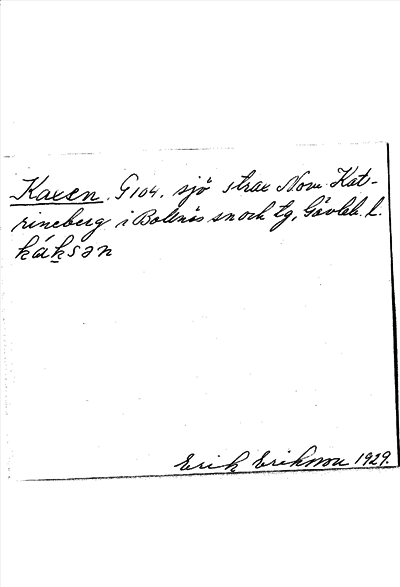 Kaxen. G104. sjö strax Nom Kat-
rineberg i Bollnäs sn och tg, Gävleb. l.
káksən
Erik Eriksson 1929.